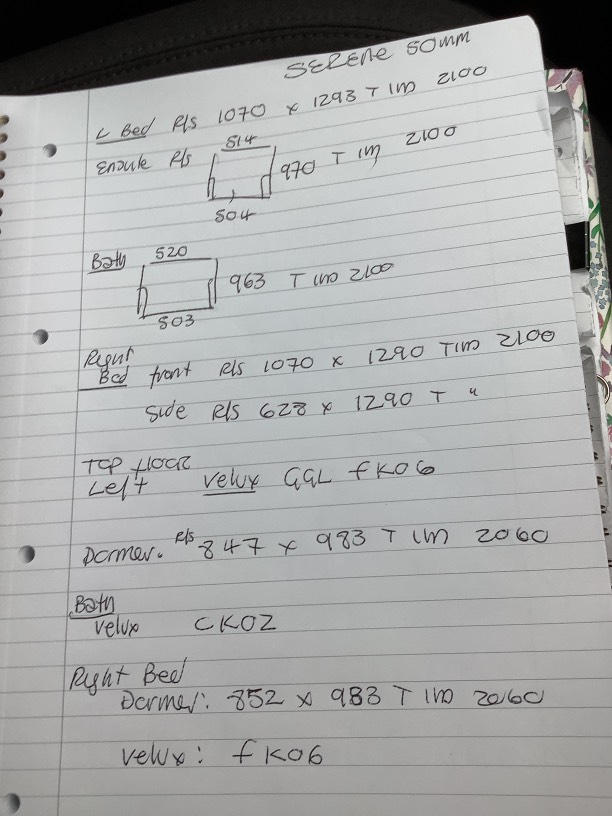 SERENE 50mm
L Bed R/s 1070 x 1293 T IM 2100
Ensuite R/s 514 970 T IM 2100
504
Bath 520
963 T IM 2100
503
Right
Bed front R/s 1070 x 1290 T IM 2100
Side R/s 628 x 1290 T "
Top floor
Left Velux GGL fK06
Dormer. R/s 847 x 983 T IM 2060
Bath
Velux CK02
Right Bed
Dormer: 852 x 983 T IM 2060
Velux: fK06